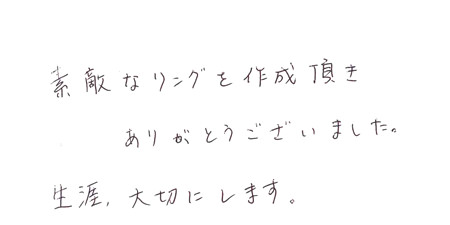 素敵なリングを作成頂き
ありがとうございました。
生涯、大切にします。